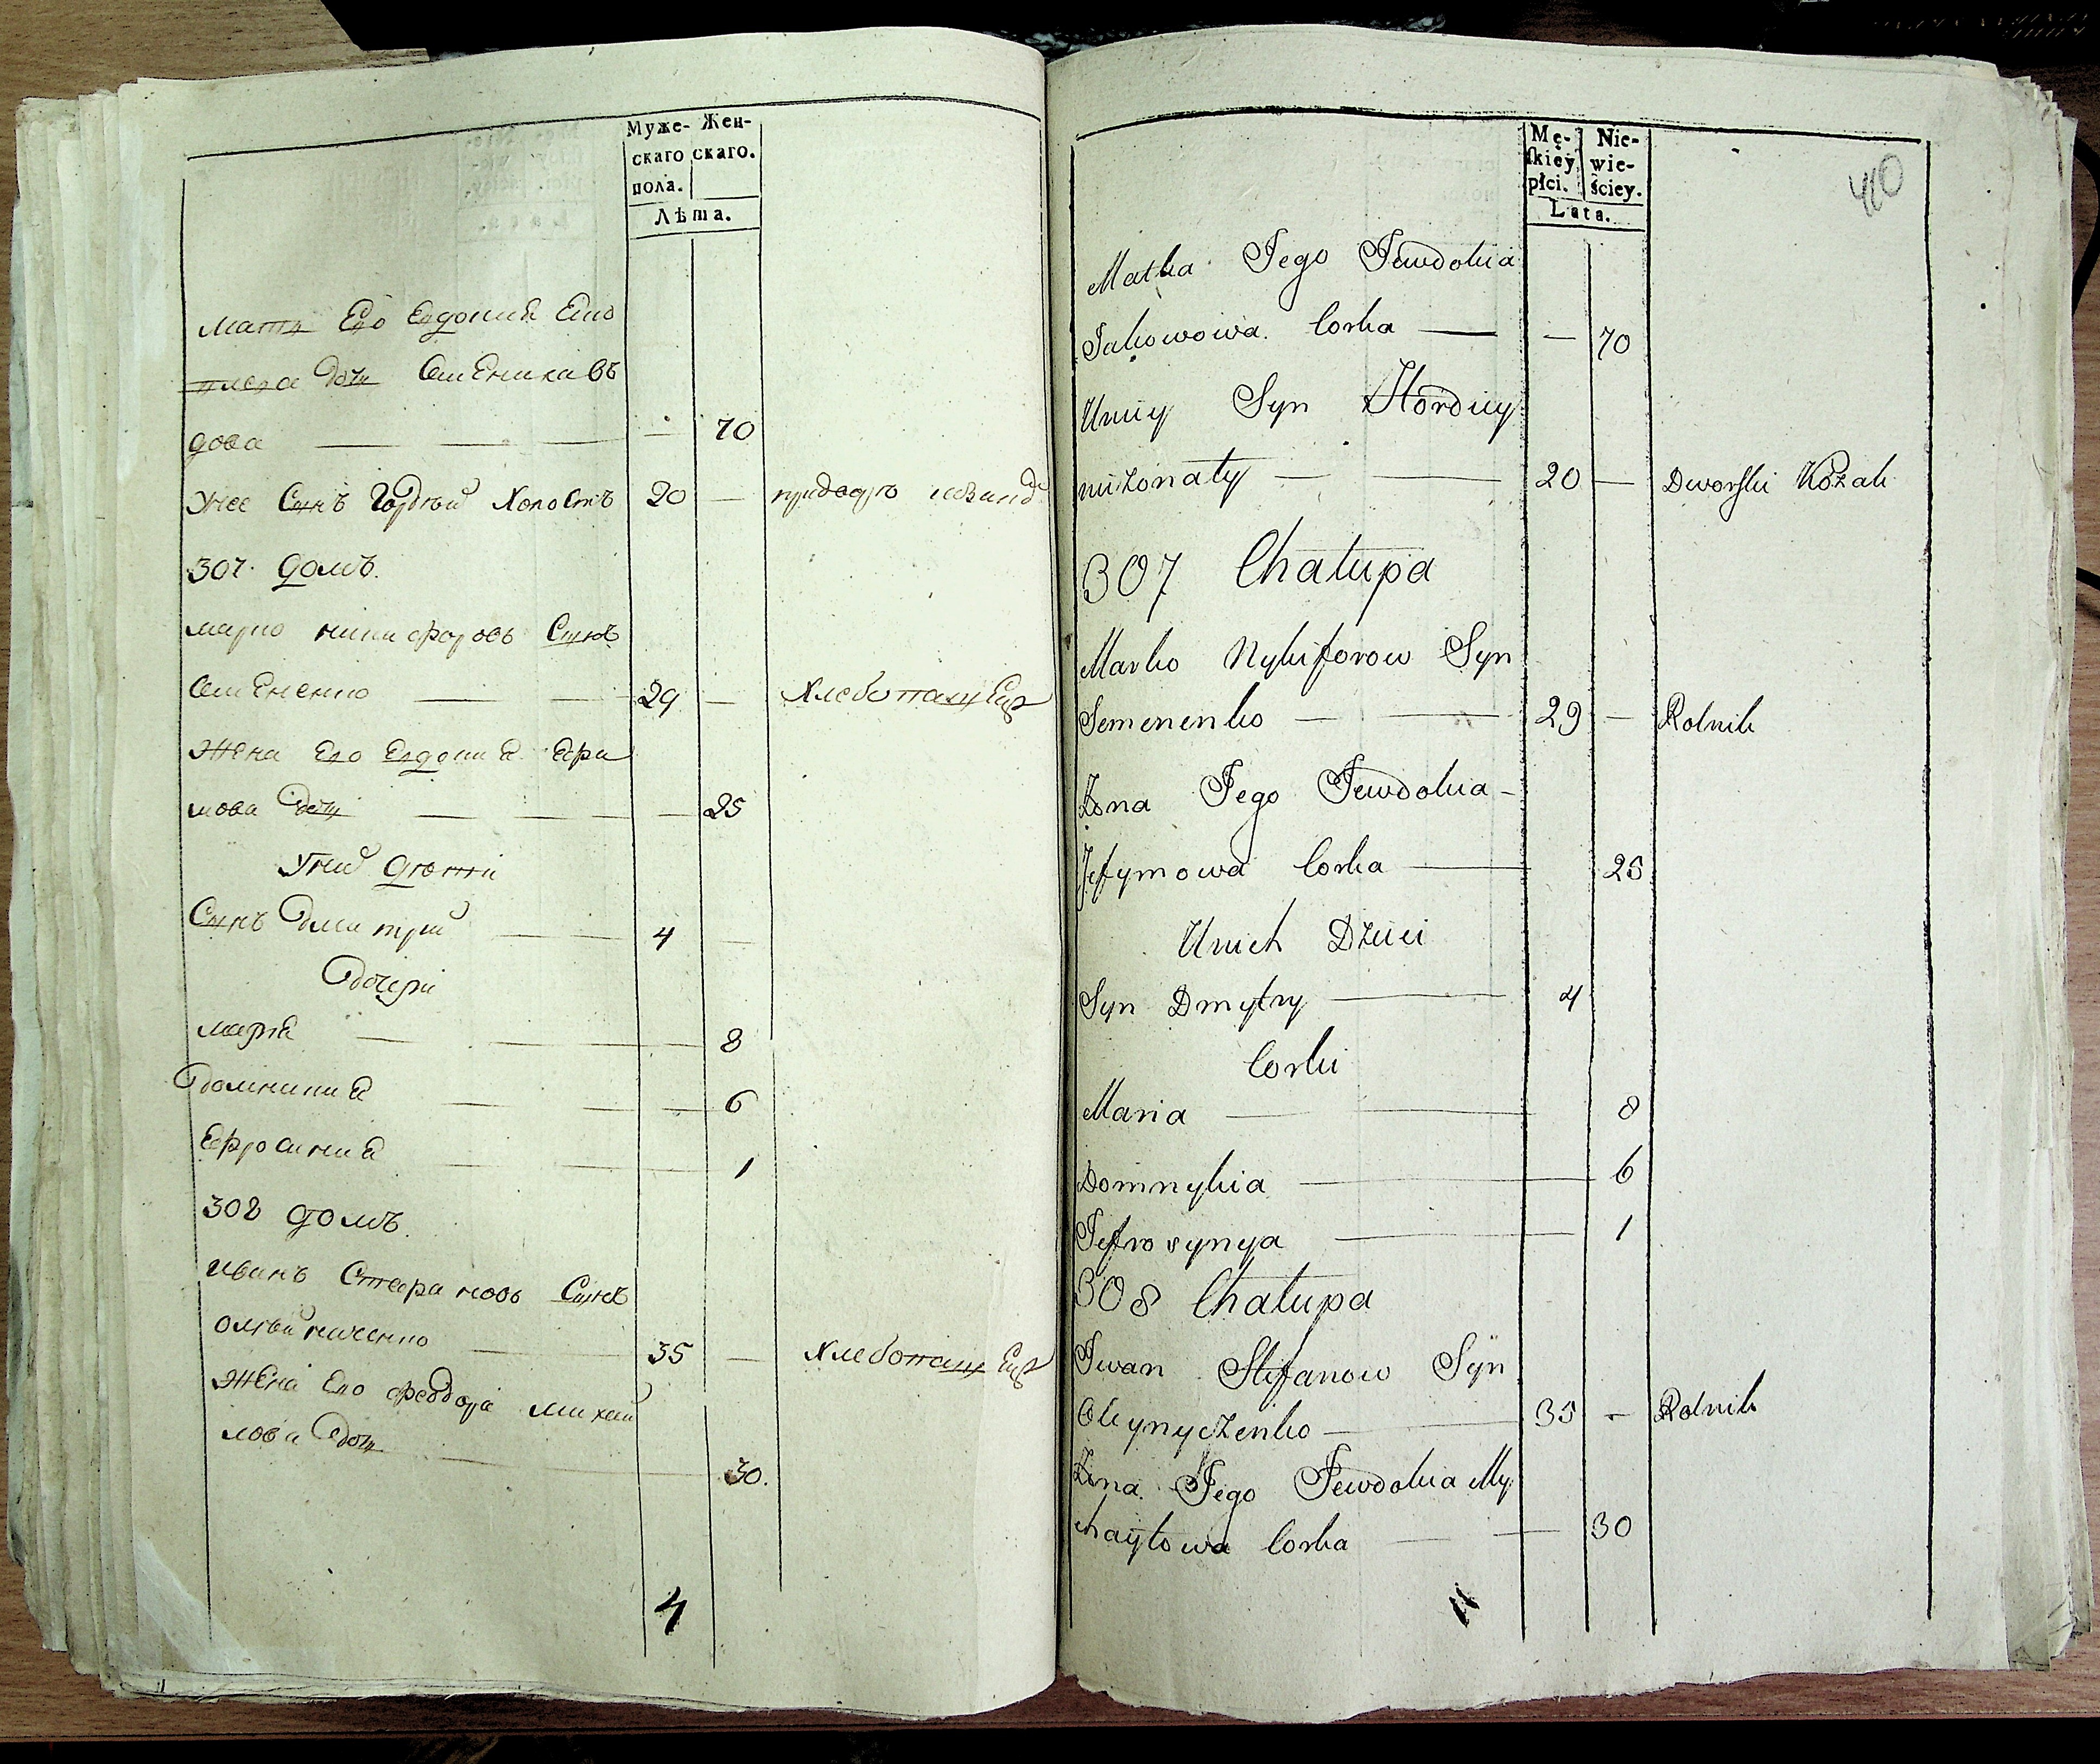 Муже- Жен-
скаго скаго.
пола.
Лѣта.
мати Его Евдокия
дочь
дова — — — — 70
Унее Сынъ Гордѣй Холостъ 20 —
307. домъ.
марко никифоровъ Сынъ
Семененко — — 29 — Хлебопашец
Жена Его Евдокия Ефи
мова дочь — — — 25
Уних дѣти
Сынъ Дмитрий — 4 —
Дочери
мария — — — 8
Домникия — — — 6
Ефросиния — — — 1
308 домъ.
иванъ Стефановъ Сынъ
олейниченко — 35 — Хлебопашец
Жена Его феодора михай
лова дочь — 30.
4
Mę- Nie-
skiey wie-
płci. ściey.
Lata.
410
Matka Jego Jewdokia
Jakowowa Corka — — 70
Uniiy Syn Hordiiy
niżonaty — — 20 — Dworski Kozak
307 Chałupa
Marko Nykiforow Syn
Semenenko — — 29 — Rolnik
Żona Jego Jewdokia -
Jefymowa Corka — 25
Unich Dzieci
Syn Dmytry — 4
Corki
Maria — — 8
Domnykia — 6
Jefrosynya — 1
308 Chałupa
Iwan Stefanow Syn
Oleynyczenko — 35 — Rolnik
Żona Jego Jewdokia My
chayłowa Corka — — 30